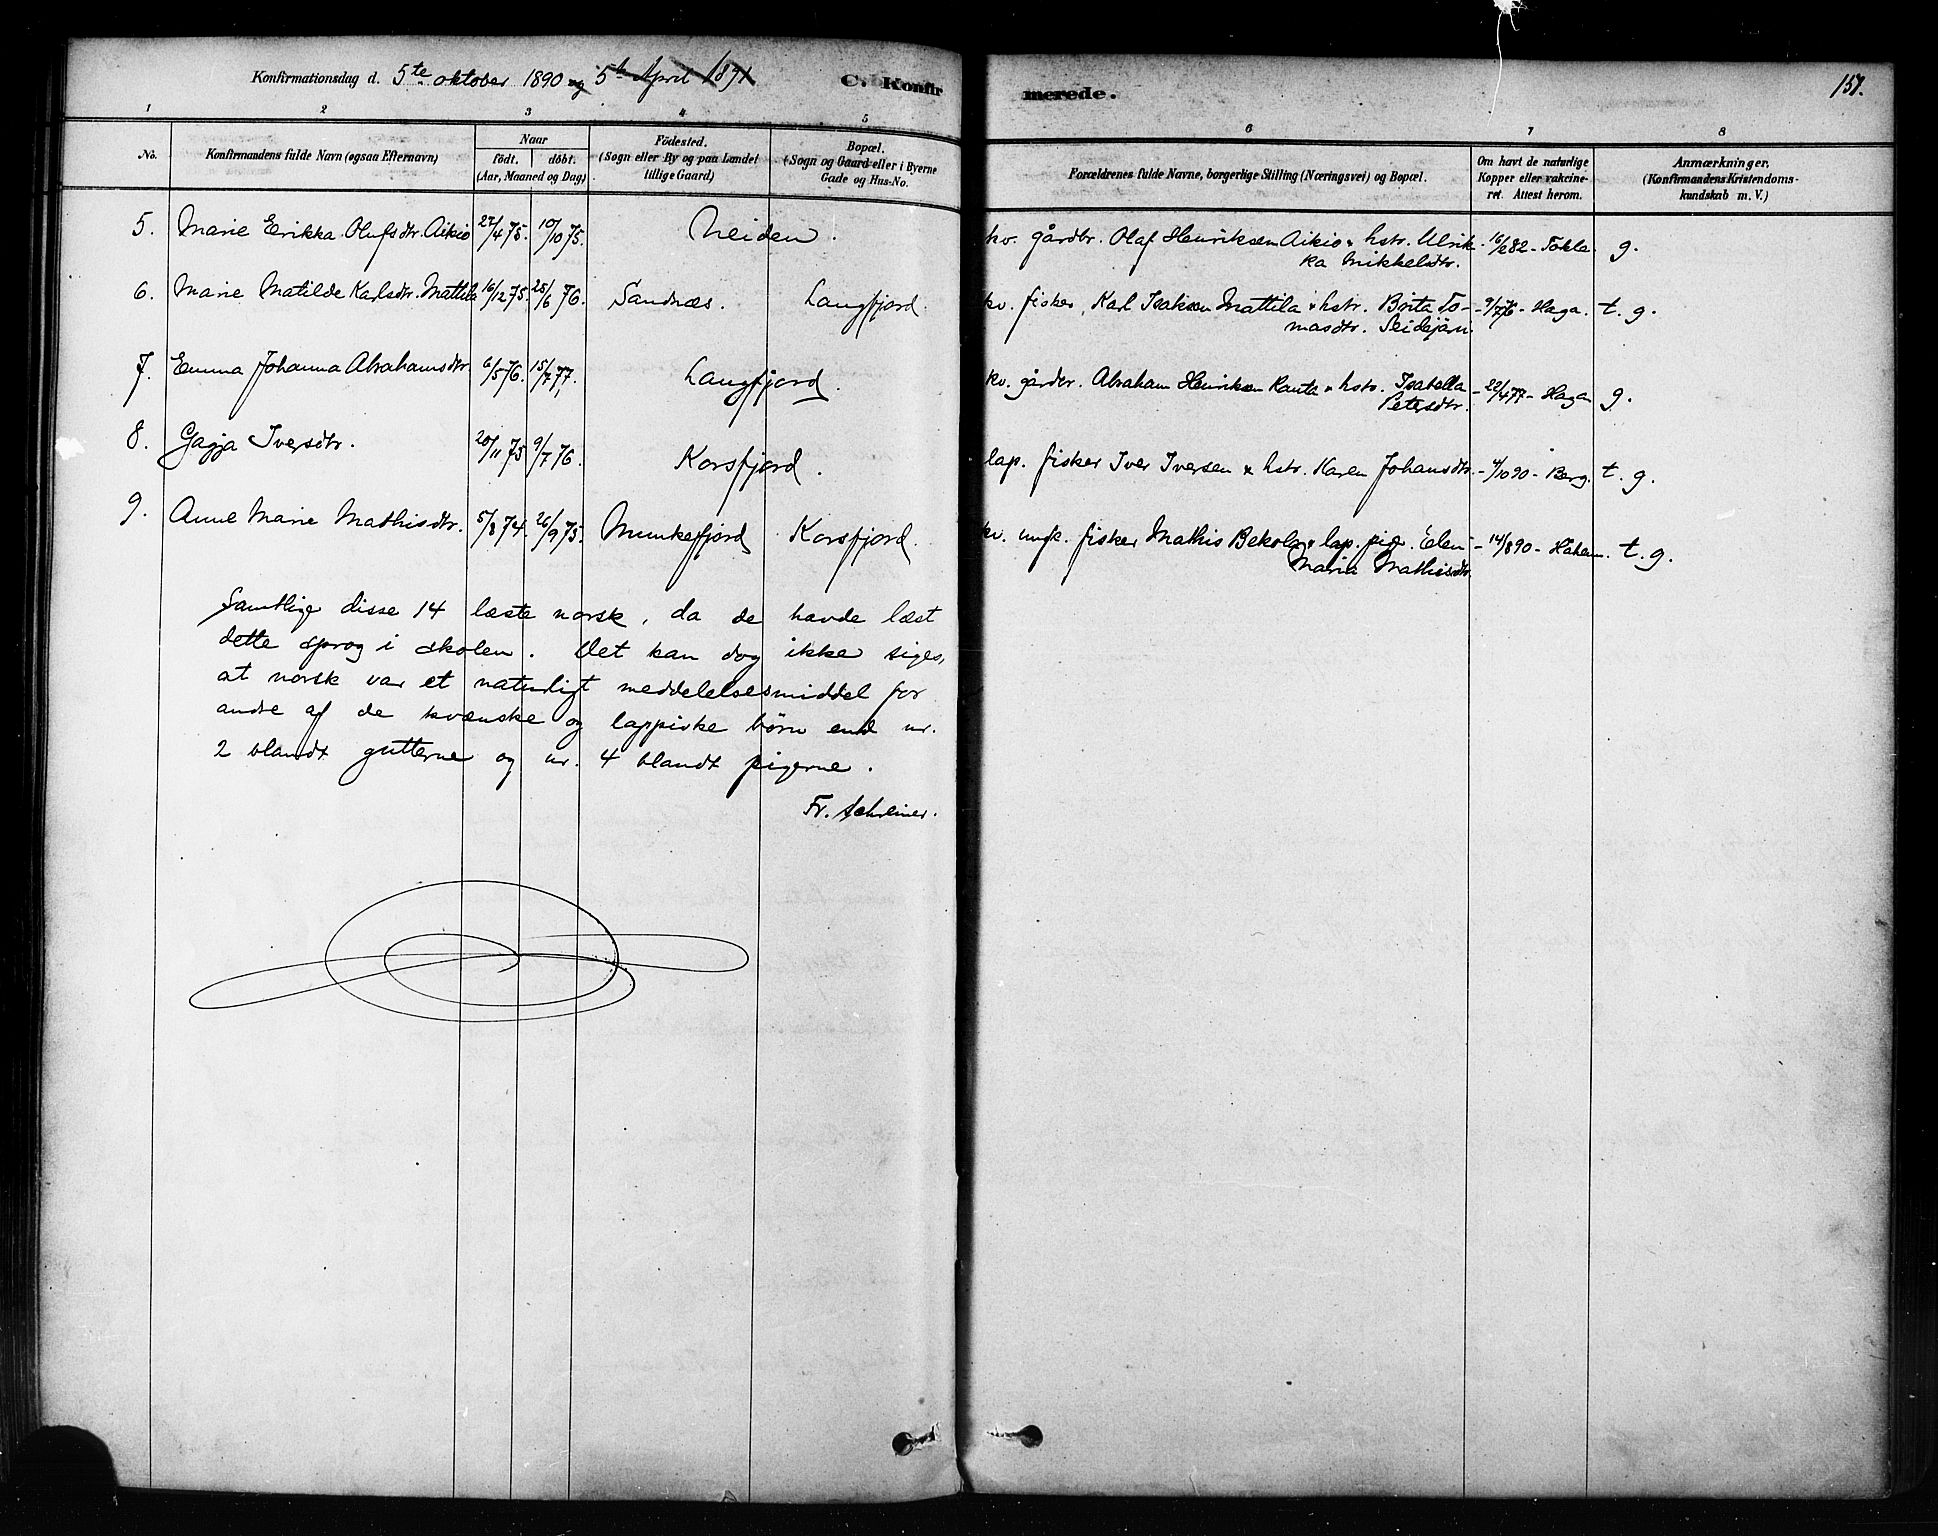 Konfirmationsdag d. 5te oktober 1890 og 5te April 1891
C. Konfir
merede.
151.
1 2 3 4 5 6 7 8
No.
Konfirmandens fulde Navn (ogsaa Efternavn)
Naar
födt. döbt.
(Aar, Maaned og Dag)
Födested.
(Sogn eller By og paa Landet
tillige Gaard)
Bopæl.
(Sogn og Gaard eller i Byerne
Gade og Hus-No.
Forældrenes fulde Navne, borgerlige Stilling (Næringsvei) og Bopæl.
Om havt de naturlige
Kopper eller vakcine-
ret. Attest herom.
Anmærkninger,
(Konfirmandens Kristendoms-
kundskab m. V.)
5. Marie Erikka Olufsdtr. Aikio 27/4 75. 10/10 75. Neiden. kv. gårdbr. Olaf Henriksen Aikio & hstr. Ulrik- 16/2 82 - Tokle. g.
ka Mikkelsdtr.
6. Marie Matilde Karlsdtr. Mattila 16/12 75. 25/6 76. Sandnæs. Langfjord. kv. fisker, Karl Isaksen Mattila & hstr. Brita To- 9/7 76 - Haga. t. g.
masdtr. Seidejärvi.
7. Emma Johanna Abrahamsdtr. 6/5 76. 15/7 77. Langfjord. kv. gårdbr. Abraham Henriksen Ranta & hstr. Isabella - 22/4 77 - Hagan g.
Petersdtr.
8. Gagja Iversdtr. 20/11 75 9/7 76. Korsfjord. lap. fisker Iver Iversen & hstr. Karen Johansdtr. - 4/10 90 - Berg. t. g.
9. Anne Marie Mathisdtr. 5/8 74. 26/9 75. Munkefjord Korsfjord. kv. ungk. fisker Mathis Bekola & lap. pige. Elen - 14/8 90 - Håkon. t. g.
Maria Mathisdtr.
Samtlige disse 14 læste norsk, da de havde læst
dette sprog i skolen. Det kan dog ikke siges,
at norsk var et naturligt meddelelsesmiddel for
andre af de kvænske og lappiske børn end nr.
2 blandt gutterne og nr. 4 blandt pigerne.
Fr. Schreiner.